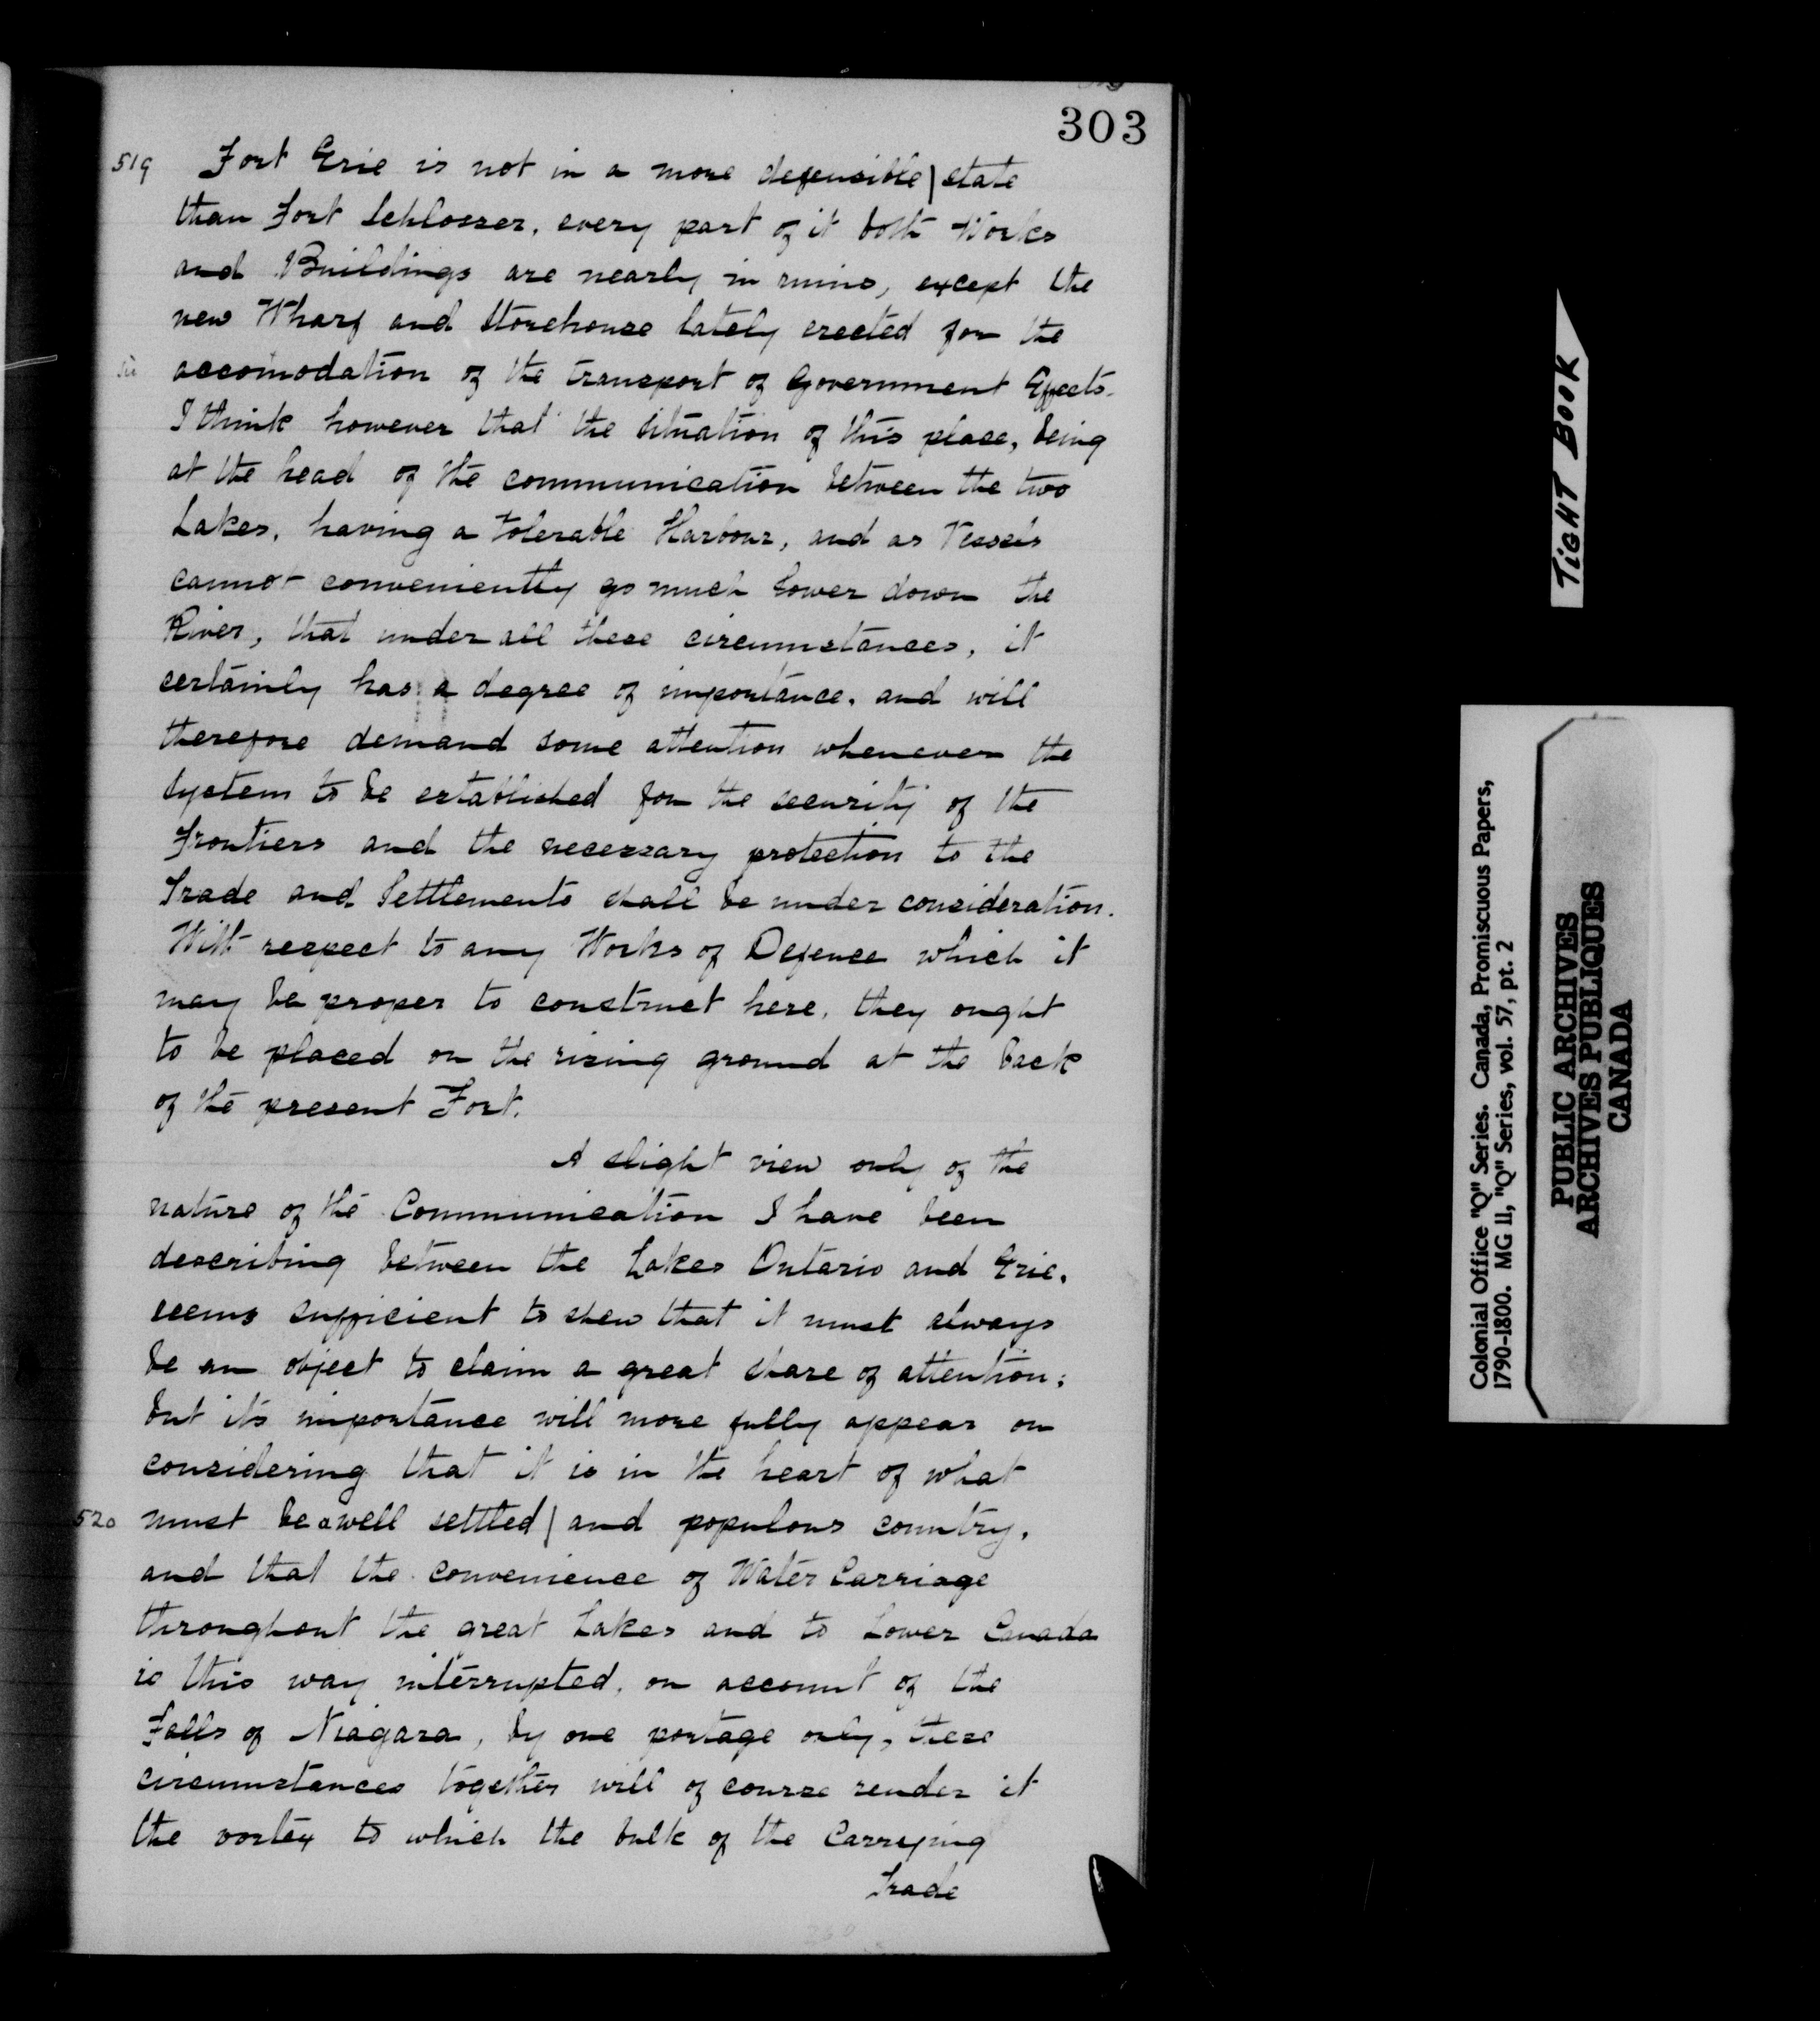 303
519 Fort Erie is not in a more defensible | state
than Fort Schlosser, every part of it both Works
and Buildings are nearly in ruins, except the
new Wharf and Storehouse lately erected for the
sic accomodation of the transport of Government Effects.
I think however that the situation of this place, being
at the head of the communication between the two
Lakes, having a tolerable Harbour, and as Vessels
cannot conveniently go much lower down the
River, that under all these circumstances, it
certainly has a degree of importance, and will
therefore demand some attention whenever the
System to be established for the security of the
Frontiers and the necessary protection to the
Trade and Settlements shall be under consideration.
With respect to any Works of Defence which it
may be proper to construct here, they ought
to be placed on the rising ground at the back
of the present Fort.
A slight view only of the
nature of the Communication I have been
describing between the Lakes Ontario and Erie,
seems sufficient to shew that it must always
be an object to claim a great share of attention;
but it's importance will more fully appear on
considering that it is in the heart of what
520 must be a well settled | and populous country,
and that the convenience of Water Carriage
throughout the great Lakes and to Lower Canada
is this way interrupted, on account of the
Falls of Niagara, by one portage only, these
circumstances together will of course render it
the vortex to which the bulk of the Carrying
Trade
TIGHT BOOK
Colonial Office "Q" Series. Canada, Promiscuous Papers,
1790-1800. MG 11, "Q" Series, vol. 57, pt. 2
PUBLIC ARCHIVES
ARCHIVES PUBLIQUES
CANADA